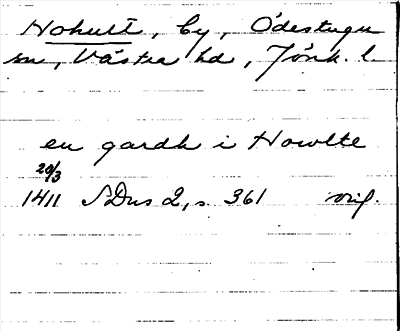 Nohult, by, Ödestugu
sn, Västra hd, Jönk. l.
en gardh i Nowlte
20/3
1411 SDns 2, s. 361 orig.